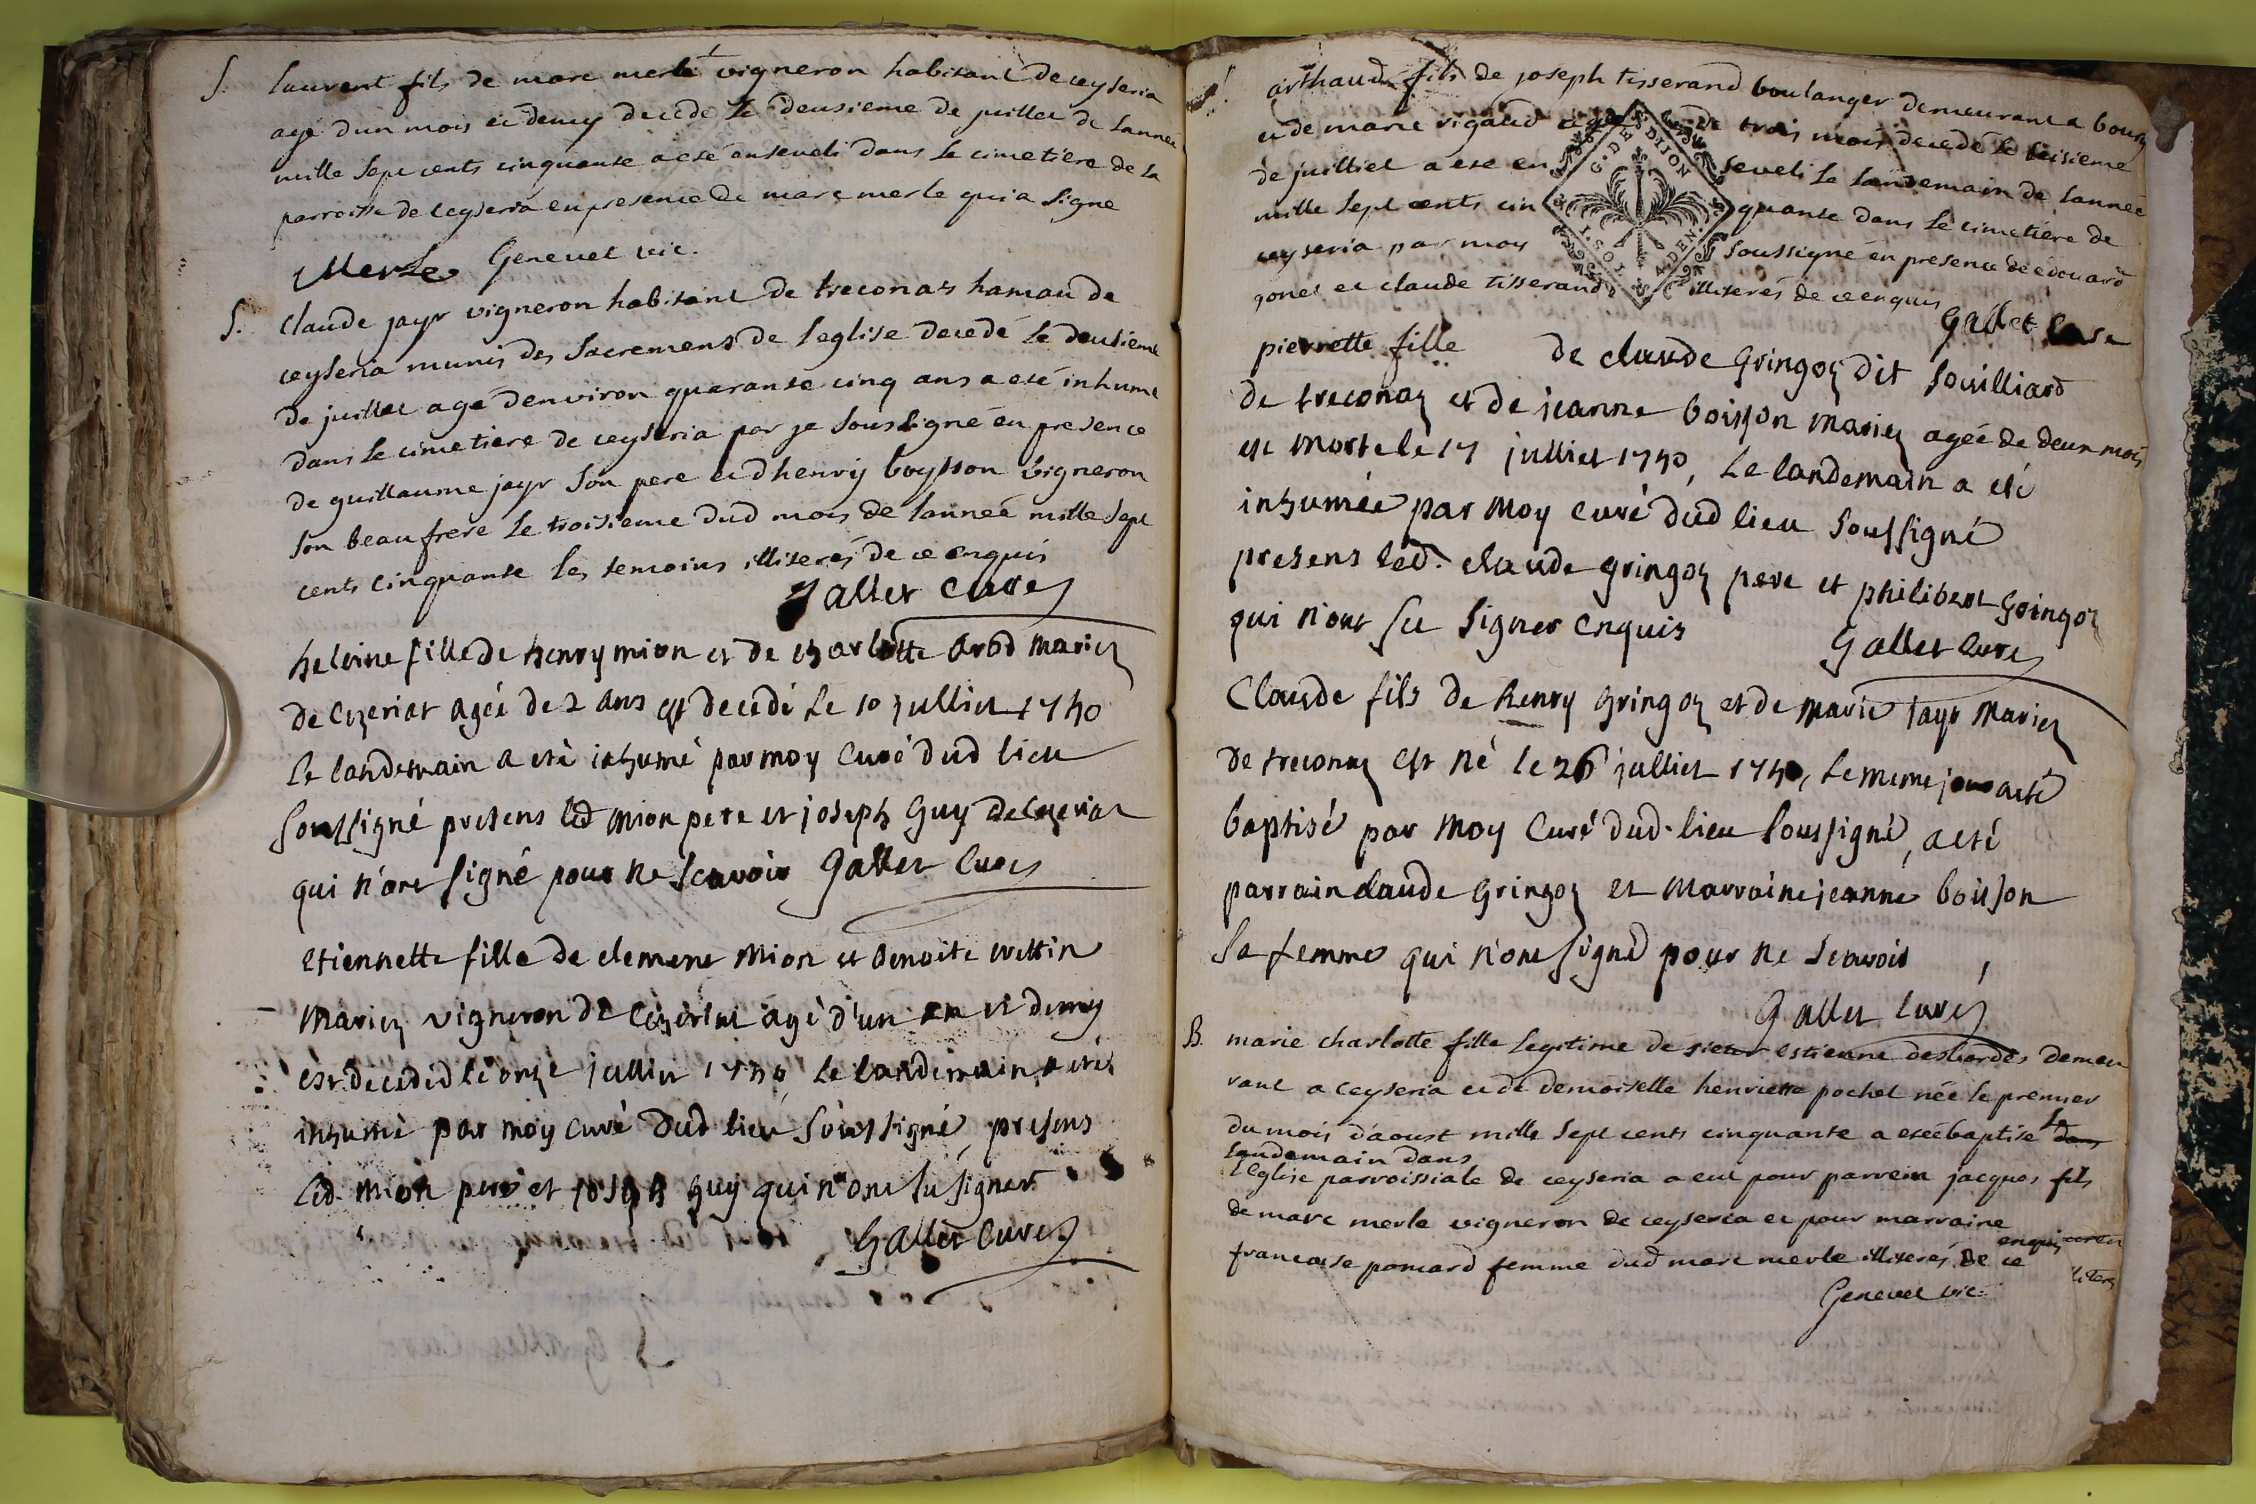 S. laurent fils de marc merle vigneron habitant de ceyseria
agé dun mois et demy decede le deusieme de juillet de lannée
mille sept cents cinquante a eté enseveli dans le cimetiere de la
parroisse de ceyseria en presence de marc merle qui a signe
Merle Genevet vic.
S. Claude jayr vigneron habitant de treconas hamau de
ceyseria munis des sacremens de leglise decedé le deusieme
de juillet agé denviron quarante cinq ans a eté inhumé
dans le cimetiere de ceyseria par je soussigné en presence
de guillaume jayr son pere et dhenry boysson vigneron
son beau frere le troisieme dud mois de lanneé mille sept
cents cinquante les temoins illiterés de ce enquis
Gallet Curé
heleine fille de henry mion et de charlotte Arod mariez
de Cezeriat ageé de 2 ans est decedé le 10 julliet 1750
le landemain a eté inhumé par moy Curé dud lieu
soussigné presens led mion pere et joseph Guy de Cezeriat
qui n'ont signé pour ne scavoir Gallet Curé
etiennette fille de clement Mion et benoite
Mariez vigneron de Cezeriat agé d'un an et demy
est decedéd le onze julliet 1750 le landemain a eté
inhumé par moy Curé dud lieu soussigné, presens
led. Mion pere et joseph Guy qui n'ont su signer
Gallet Curé
S. arthaud fils de joseph tisserand boulanger demeurant a bourg
et de marie rigaud agé de trois mois decedé le seisieme
de juilliet a ete en seveli le landemain de lanneé
mille sept cents cin quante dans le cimetiére de
ceyseria par moy soussigné en presence de edouard
gonet et claude tisserand illiterés de ce enquis
Gallet Curé
G. DE DIJON
I. SOL 4. DEN.
pierrette fille de claude Gringoz dit souilliard
de treconaz et de jeanne boisson Mariez ageé de deux mois
est morte le 17 julliet 1750, le landemain a eté
inhumée par moy Curé dud lieu soussigné
presens led. claude Gringoz pere et philibert Gringoz
qui n'ont su signer enquis Gallet Curé
Claude fils de henry Gringoz et de marie jayr Mariez
de treconaz est né le 26 julliet 1750, le meme jour a eté
baptisé par moy Curé dud. lieu soussigné, a eté
parrain claude Gringoz et marraine jeanne boisson
sa femme qui n'ont signé pour ne scavoir
Gallet Curé
B. marie charlotte fille legitime de sieur estienne desbordes demeu
rant a ceyseria et de demoiselle henriette pochet née le premier
du mois d'aoust mille sept cents cinquante a eté baptise le dans
landemain dans
l'eglise parroissiale de ceyseria a eut pour parrein jacques fils
de marc merle vigneron de ceyseria et pour marraine
francoise pomard femme dud marc merle illiterés de ce enquis
Genevet vic.